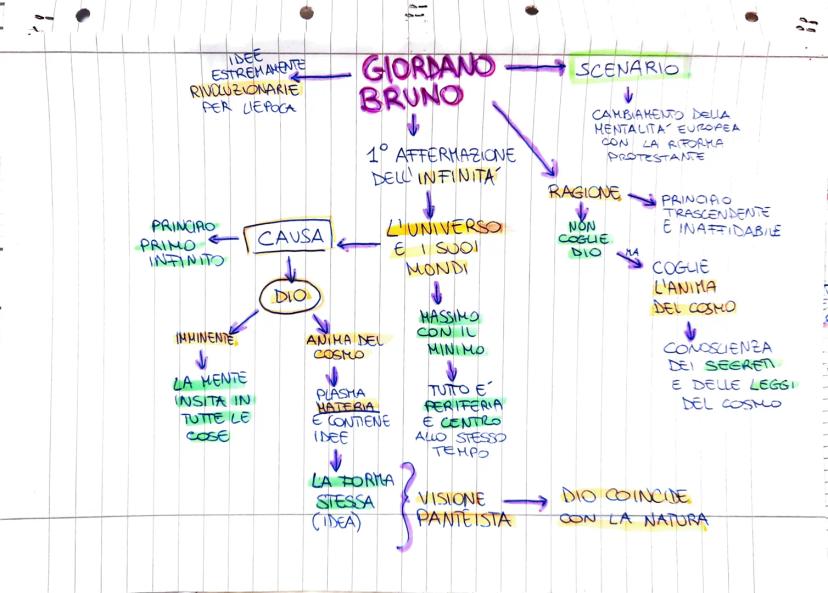 IDEE
ESTREMAMENTE
RIVOLUZIONARIE
PER L'EPOCA
GIORDANO
BRUNO
SCENARIO
CAMBIAMENTO DELLA
MENTALITA' EUROPEA
CON LA RIFORMA
PROTESTANTE
1° AFFERMAZIONE
DELL'INFINITA'
RAGIONE
PRINCIPIO
TRASCENDENTE
E INAFFIDABILE
NON
COGLIE
DIO
MA
COGLIE
L'ANIMA
DEL COSMO
CONOSCIENZA
DEI SEGRETI
E DELLE LEGGI
DEL COSMO
L'UNIVERSO
E I SUOI
MONDI
CAUSA
PRINCIPIO
PRIMO
INFINITO
DIO
IMMINENTE
LA MENTE
INSITA IN
TUTTE LE
COSE
ANIMA DEL
COSMO
PLASMA
MATERIA
E CONTIENE
IDEE
LA FORMA
STESSA
(IDEA)
MASSIMO
CON IL
MINIMO
TUTTO E'
PERIFERIA
E CENTRO
ALLO STESSO
TEMPO
VISIONE
PANTEISTA
DIO COINCIDE
CON LA NATURA